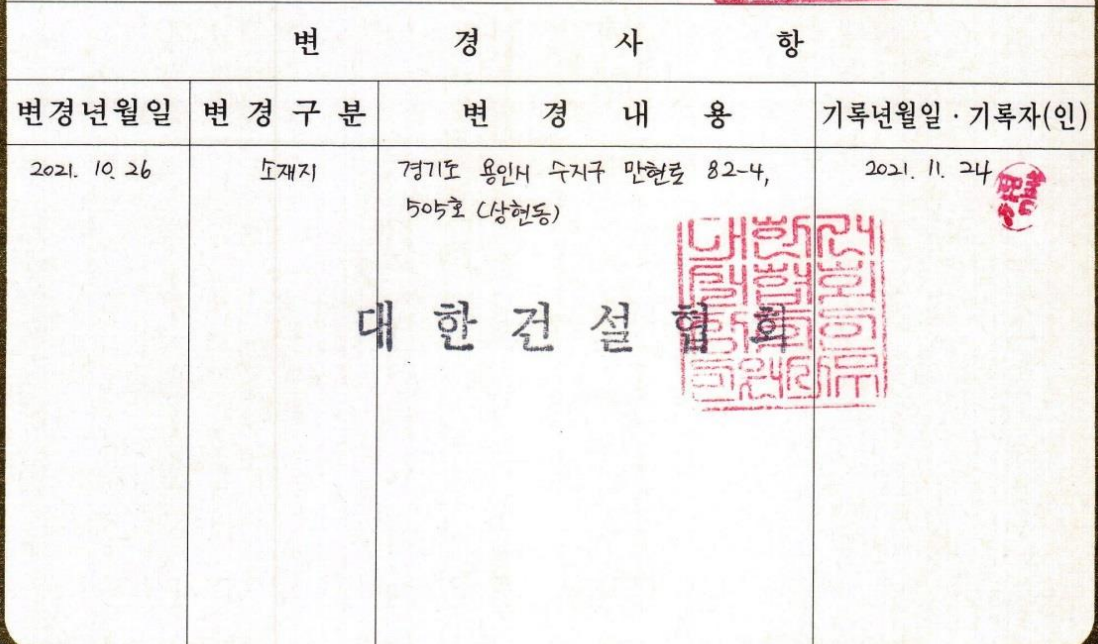 변 경 사 항
변경년월일 변경구분 변 경 내 용 기록년월일 · 기록자(인)
2021. 10. 26 소재지 경기도 용인시 수지구 만현로 82-4, 2021. 11. 24
505호 (상현동)
대한건설협회